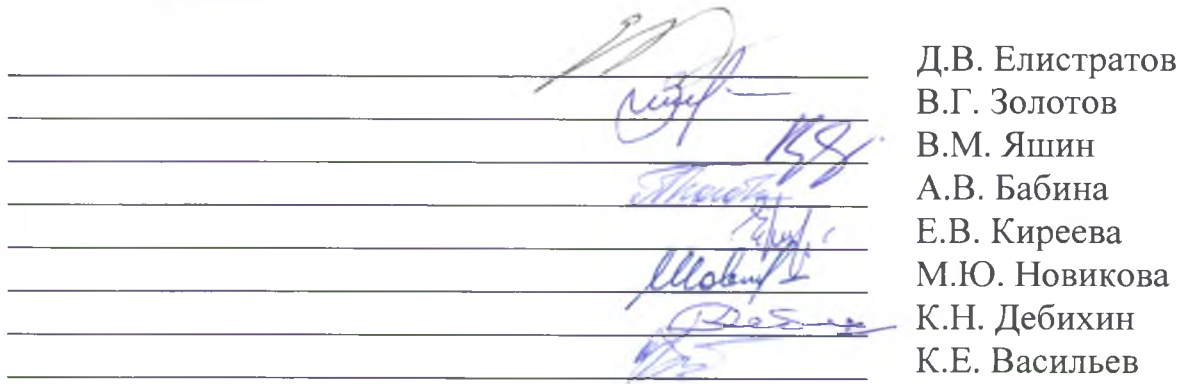 Д.В. Елистратов
В.Г. Золотов
В.М. Яшин
А.В. Бабина
Е.В. Киреева
М.Ю. Новикова
К.Н. Дебихин
К.Е. Васильев